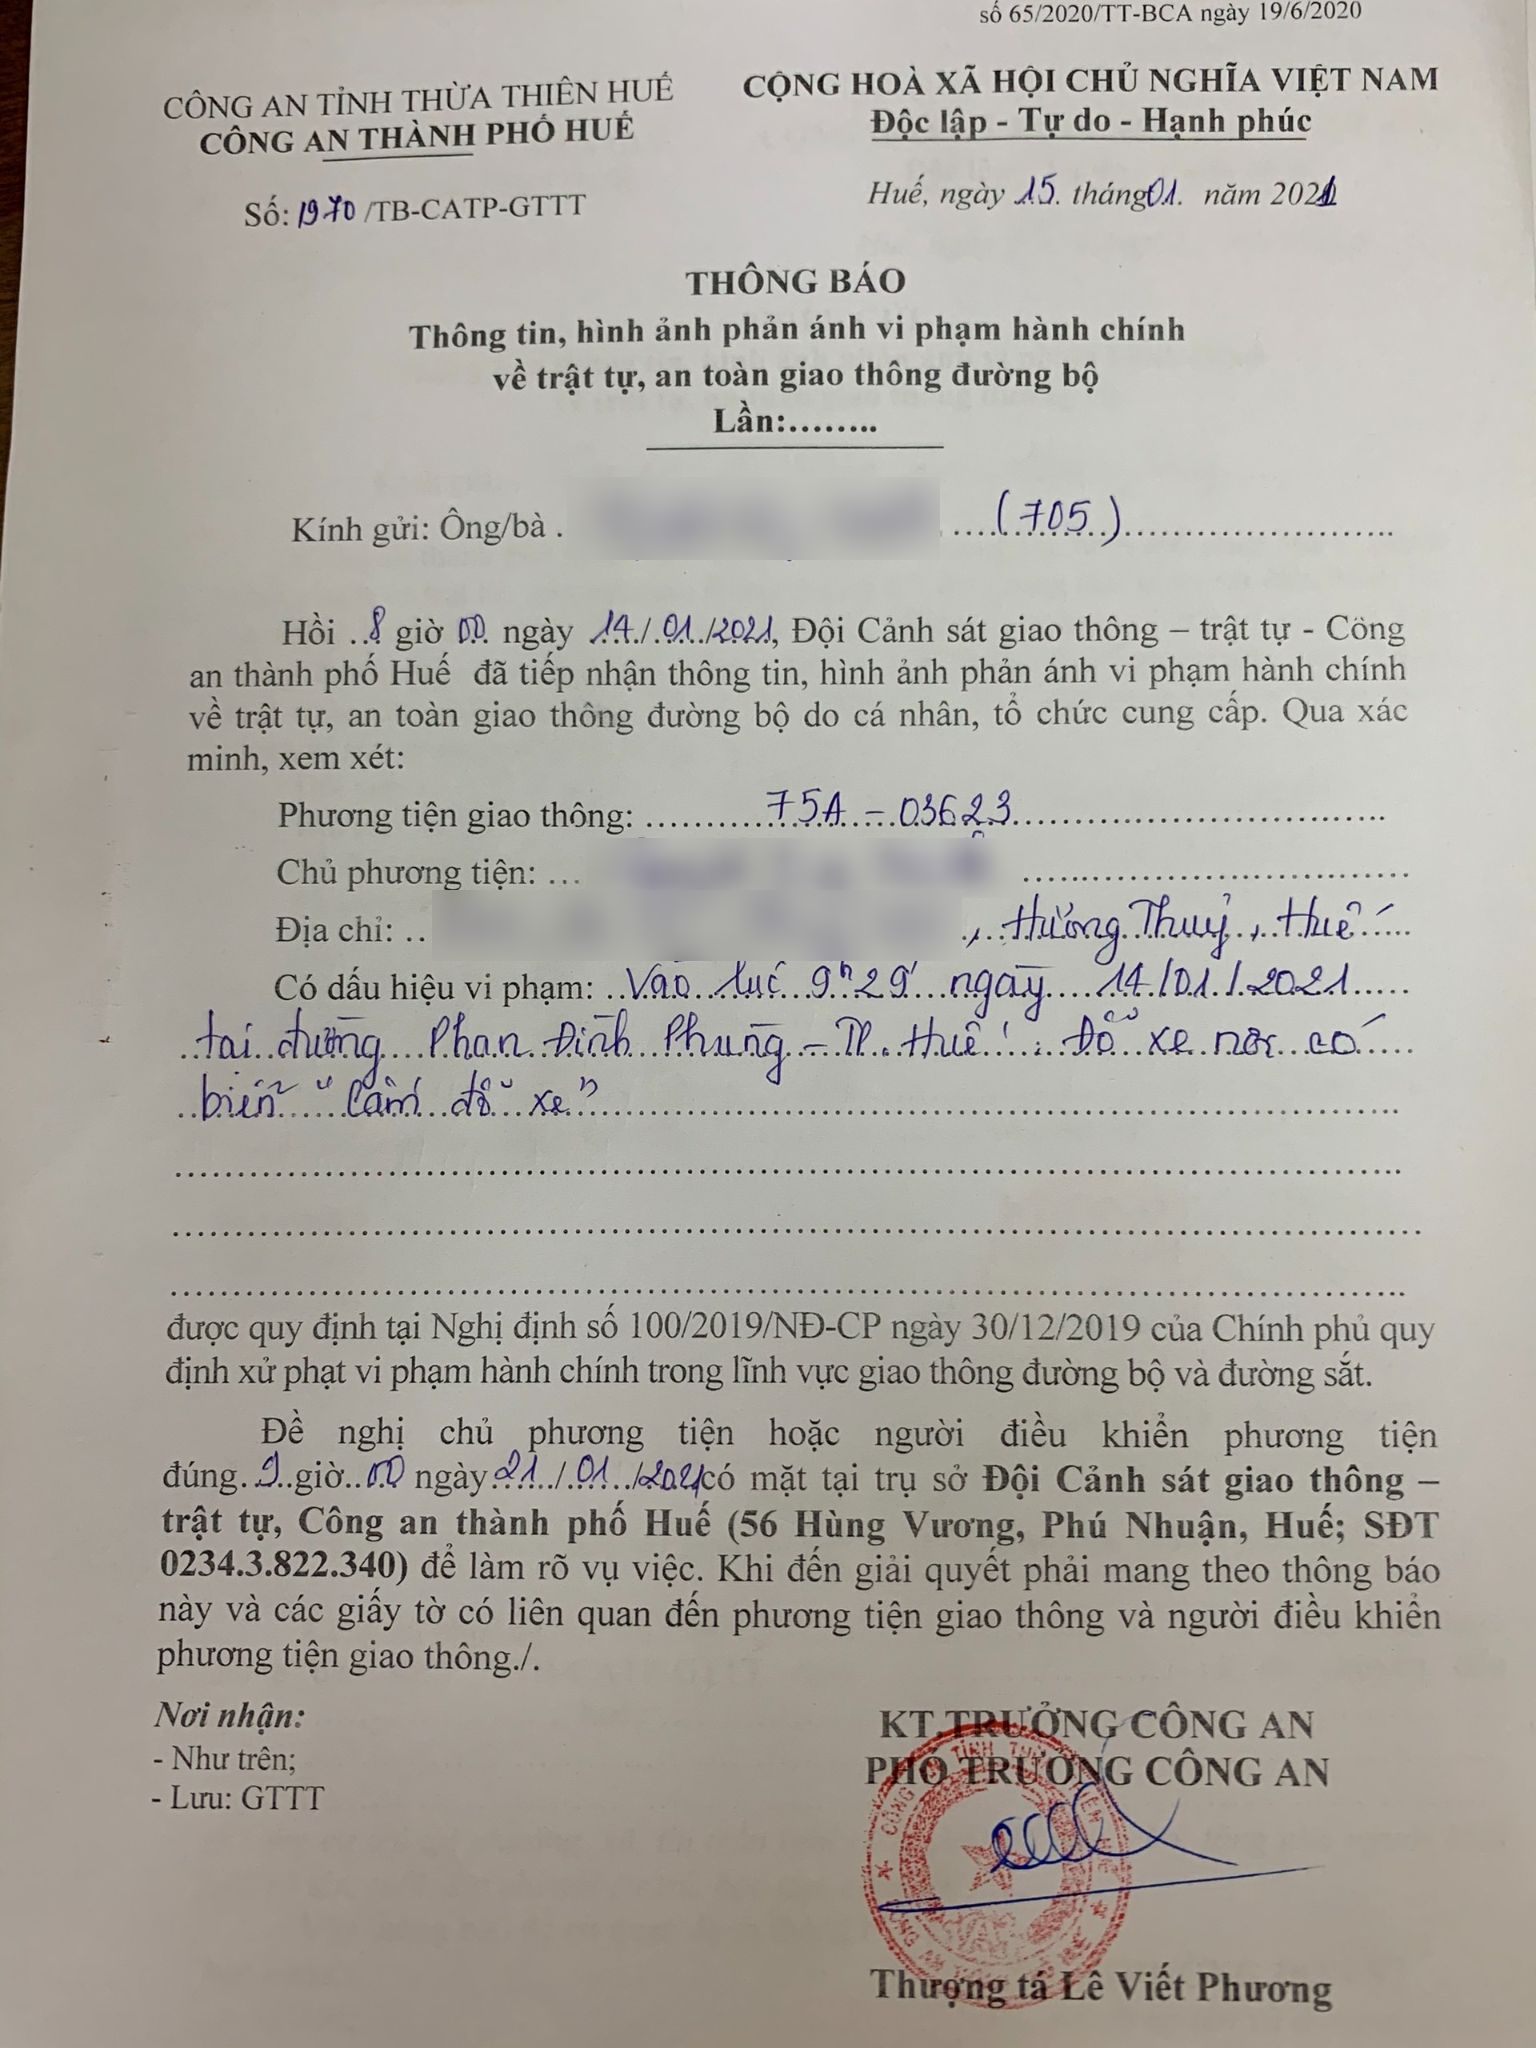 số 65/2020/TT-BCA ngày 19/6/2020
CÔNG AN TỈNH THỪA THIÊN HUẾ
CÔNG AN THÀNH PHỐ HUẾ
CỘNG HOÀ XÃ HỘI CHỦ NGHĨA VIỆT NAM
Độc lập - Tự do - Hạnh phúc
Số: 1970 /TB-CATP-GTTT
Huế, ngày 15. tháng 01. năm 2021
THÔNG BÁO
Thông tin, hình ảnh phản ánh vi phạm hành chính
về trật tự, an toàn giao thông đường bộ
Lần:........
Kính gửi: Ông/bà . ....(705)........................
Hồi ..8 giờ 00 ngày 14./.01./2021, Đội Cảnh sát giao thông – trật tự - Công
an thành phố Huế đã tiếp nhận thông tin, hình ảnh phản ánh vi phạm hành chính
về trật tự, an toàn giao thông đường bộ do cá nhân, tổ chức cung cấp. Qua xác
minh, xem xét:
Phương tiện giao thông: ............75A – 03623..............................
Chủ phương tiện: ... ..............................
Địa chỉ: .. , Hương Thuỷ, Huế
Có dấu hiệu vi phạm: ..Vào lúc 9h29' ngày 14/01/2021
tại đường Phan Đình Phùng – TP. Huế : Đỗ xe nơi có
biển "Cấm đỗ xe"
được quy định tại Nghị định số 100/2019/NĐ-CP ngày 30/12/2019 của Chính phủ quy
định xử phạt vi phạm hành chính trong lĩnh vực giao thông đường bộ và đường sắt.
Đề nghị chủ phương tiện hoặc người điều khiển phương tiện
đúng. 9 ..giờ.. 00 ngày 21../.01../2021 có mặt tại trụ sở Đội Cảnh sát giao thông –
trật tự, Công an thành phố Huế (56 Hùng Vương, Phú Nhuận, Huế; SĐT
0234.3.822.340) để làm rõ vụ việc. Khi đến giải quyết phải mang theo thông báo
này và các giấy tờ có liên quan đến phương tiện giao thông và người điều khiển
phương tiện giao thông./.
Nơi nhận:
- Như trên;
- Lưu: GTTT
KT.TRƯỞNG CÔNG AN
PHÓ TRƯỞNG CÔNG AN
Thượng tá Lê Viết Phương